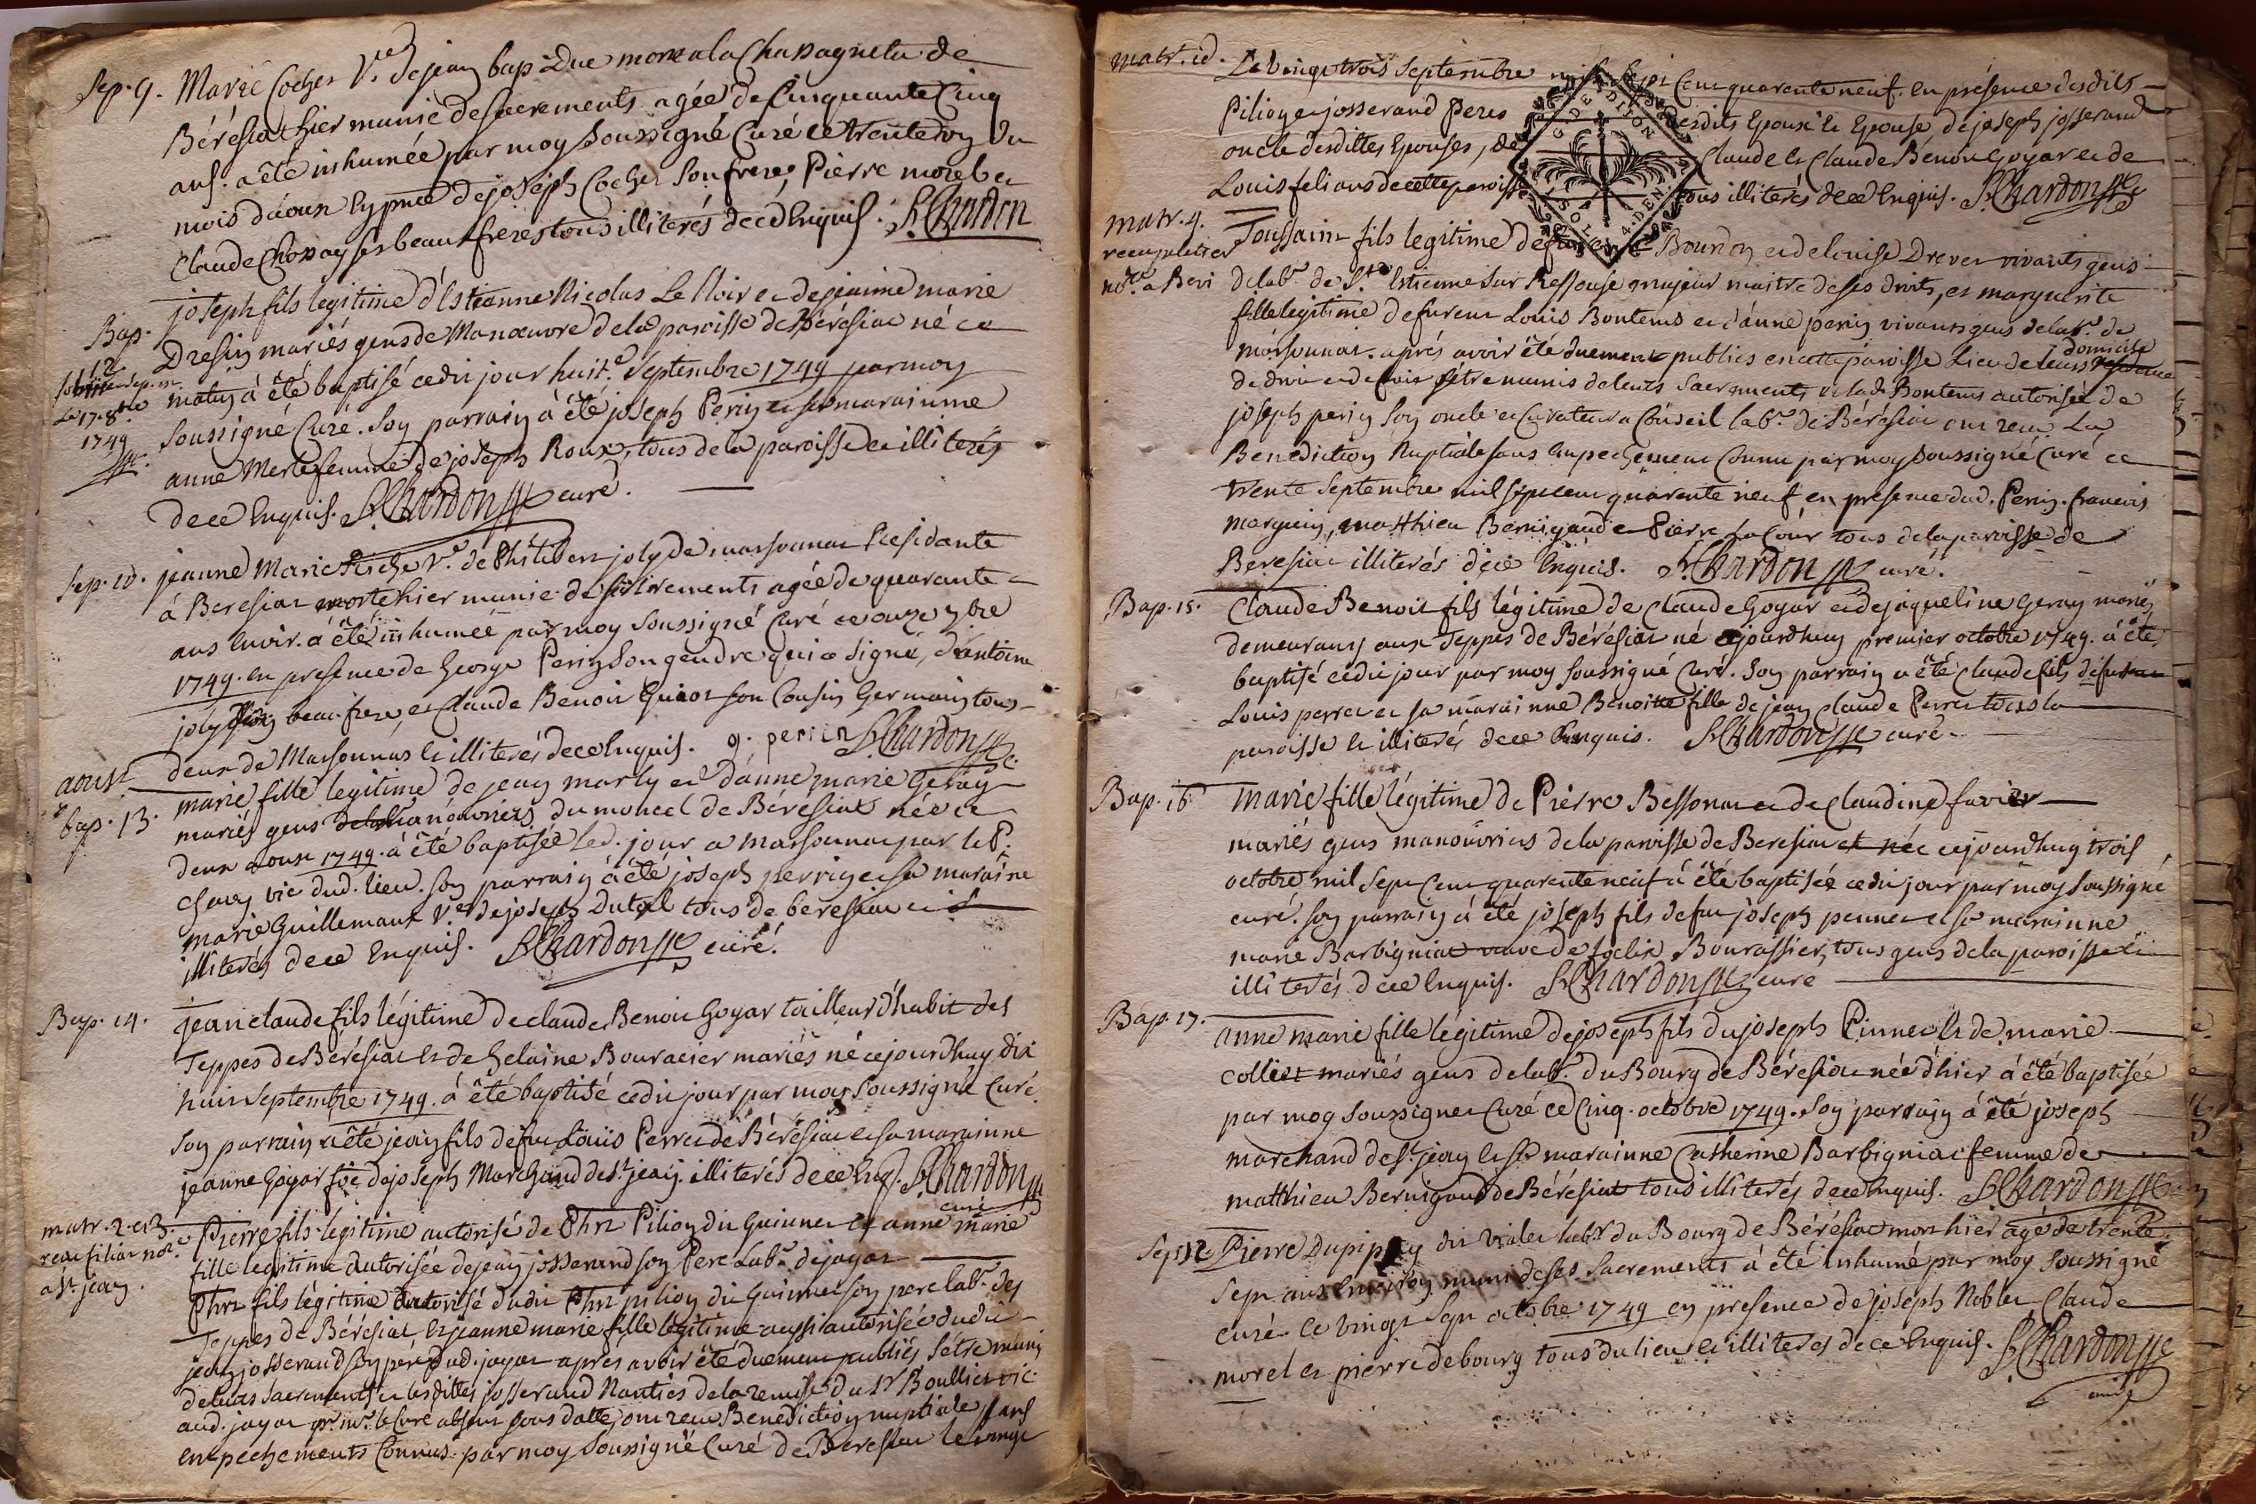 Sep. 9. Marie Cochet Ve de jean bap. Duc morte a la Chassagnela de
Béréziat hier munie de sacrements agée de Cinquante Cinq
ans. a été inhumée par moy soussigné Curé le trente un du
mois d'aoux en pnce de joseph Cochet son frere, Pierre morel et
Claude Chossay ses beaux freres tous illiterés de ce Enquis. St. Chardon
Bap. 12
joseph fils legitime d'Estienne Nicolas Le Noir et de jeanne marie
Dresin mariés gens de Manœuvre de la paroisse de Béresiat né ce
Le 17. 8bre
1749
matin à été baptisé cedit jour huit.e Septembre 1749 par moy
soussigné Curé. Son parrain à été joseph Perin et sa marainne
anne Merle femme de joseph Roux, tous de la paroisse et illiterés
de ce Enquis. St. Chardon curé.
Sep. 10. jeanne Marie Ve. de Philibert joly de marsonnat Residante
à Beresiat morte hier munie de sacrements agée de quarante
ans envir. à été inhumée par moy soussigné Curé ce onze 7bre
1749. en presence de George Perin son gendre qui a signé, d'antoine
joly beau frere, et Claude Benoit Guiot son Cousin Germain tous
deux de Marsonnas et illiterés de ce Enquis. g. perin St. Chardon
aoust
bap. 13.
marie fille legitime de jean marly et d'anne marie Geray
mariés gens manouvriers du moncel de Béresiat née ce
deux aoux 1749. à été baptisée led. jour a marsonnat par le P.
Chary vic dud. lieu. son parrain à été joseph perrin et sa maraine
marie Guillemaux Ve de joseph Dutel tous de beresiat et
illiterés de ce Enquis. St. Chardon curé.
Bap. 14.
jean claude fils légitime de claude Benoit Goyar tailleur d'habit des
Teppes de Béresiat et de Helaine Bouracier mariés né cejourdhuy dix
huit Septembre 1749. à été baptisé cedit jour par moy Soussigné Curé.
Son parrain a été jean fils defu Loüis Perret de Béresiat et sa marainne
jeanne Goyar fe de joseph Marchand de St. jean. illiterés de ce Enq. St. Chardon
curé
matr. 2. et 3.
recu filiar nore
a St. jean.
Pierre fils legitime autorisé de Phre Pilion du Guinnet et anne marie
fille legitime autorisée de jean josserand son Pere Labr. de jayat
Phre fils légitime autorisé dudit Phre pilion du Guinnet son pere labr. des
Teppes de Béresiat, et jeanne marie fille legitime aussi autorisée dudit
jean josserand son pére dud. jayat apres avoir été duement publiés s'étre munis
de leurs sacrements et lesdittes josserand Nanties de la remise du Sr. Boullier vic.
aud. jayat pr. mr. le Curé absent sous datte, ont recu Benediction nuptiale sans
enpechements Connus par moy Soussigné Curé de Beresiat le vingt
matr. id. Le vingt trois Septembre mil sept Cent quarente neuf. en présence desdits
Pilion et josserand Peres desdits Epoux et Epouse, de joseph josserand
oncle desdittes Epouses, de Claude et Claude Benoit Goyar et de
Louis felians de cette paroisse tous illiterés de ce Enquis. St. Chardon
G. DE DIJON
SOL. 4. DEN.
matr. 4.
nore. a Beri
Toussaint fils legitime de fu Bourdon et de louise Drevet vivants gens
de labr. de St. Estienne sur Ressouse majeur maitre de ses droits, et marguerite
fille legitime de fureur Louis Bontems et d'anne perin vivants gens de labr. de
marsonnat. aprés avoir été duement publiés en cette paroisse Lieu de leurs domicile
de droit et de fait s'étre munis de leurs sacrements et lad. Bontems autorisée de
joseph perin son oncle et Curateur a Conseil labr. de Béresiat ont recu La
Benediction Nuptiale sans enpechement Connu par moy soussigné Curé ce
trente Septembre mil sept cent quarente neuf en presence dud. Perin. francois
marguin, matthieu Bernigaud et Pierre La Cour tous de la paroisse de
Beresiat illiterés de ce Enquis. St. Chardon curé.
Bap. 15.
Claude Benoit fils légitime de Claude Goyar et de jaqueline Geray mariés
demeurans aux Teppes de Béresiat né cejourdhuy premier octobre 1749. à été
baptisé cedit jour par moy soussigné Curé. Son parrain a été Claude fils defu
Louis perret et sa marainne Benoitte fille de jean Claude Perret tous la
paroisse et illiterés de ce Enquis. St. Chardon curé.
Bap. 16.
marie fille légitime de Pierre Bessonnat et de Claudine favier
mariés gens manouvriers de la paroisse de Beresiat et née cejourdhuy trois
octobre mil Sept Cent quarente neuf à été baptisée cedit jour par moy soussigné
curé. son parrain à été joseph fils de fu joseph pennet et sa marainne
marie Barbigniat veuve de felix Bourassier, tous gens de la paroisse et
illiterés de ce Enquis. St. Chardon curé
Bap. 17.
anne marie fille légitime de joseph fils du joseph Pinnet et de marie
collet mariés gens de labr. du Bourg de Béresiat née d'hier à été baptisée
par moy soussigner Curé ce Cinq octobre 1749. son parrain à été joseph
marchand de St. jean et sa marainne Catherine Barbigniat femme de
matthieu Bernigaud de Béresiat tous illiterés de ce Enquis. St. Chardon
Sep. 12. Pierre Dupipay dit vialet labr. du Bourg de Béresiat mort hier agé de trente
sept ans environ munis de ses sacrements à été inhumé par moy soussigné
curé le vingt sept octobre 1749 en presence de joseph Noblet Claude
morel et pierre debourg tous du lieu et illiteres de ce Enquis. St. Chardon
curé